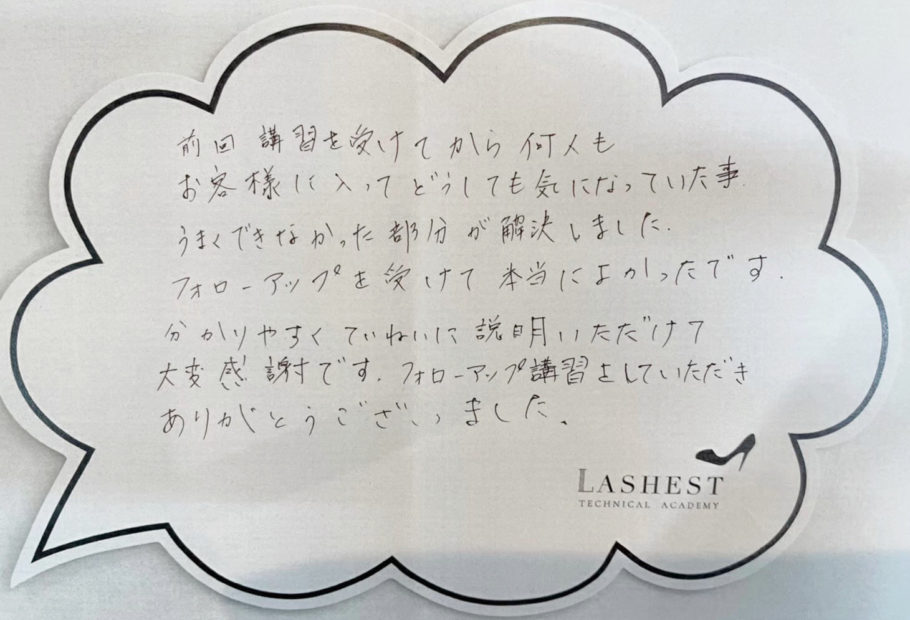 前回 講習を受けてから 何人も
お客様に入って どうしても気になっていた事.
うまくできなかった 部分が 解決しました.
フォローアップを受けて 本当によかったです.
分かりやすく ていねいに 説明いただけて
大変感謝です. フォローアップ講習をしていただき
ありがとうございました。
LASHEST
TECHNICAL ACADEMY